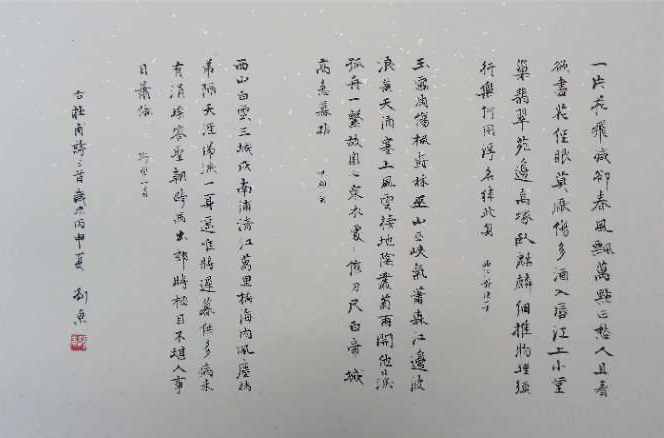 一片花飛減卻春風飄萬點正愁人且看
欲盡花經眼莫厭傷多酒入唇江上小堂
巢翡翠苑邊高塚臥麒麟細推物理須
行樂何用浮名絆此身
玉露凋傷楓樹林巫山巫峽氣蕭森江邊波
浪兼天涌塞上風雲接地陰叢菊兩開他日淚
孤舟一繫故園心寒衣處々催刀尺白帝城
高急暮砧
西山白雪三城戍南浦清江萬里橋海內風塵諸
弟隔天涯涕淚一身遙唯將遲暮供多病未
有涓埃答聖朝跨馬出郊時極目不堪人事
日蕭條 野望一首
杜甫詩三首歲次丙申夏 劉